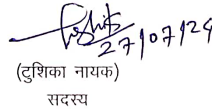 27/07/24
(टुशिका नायक)
सदस्य